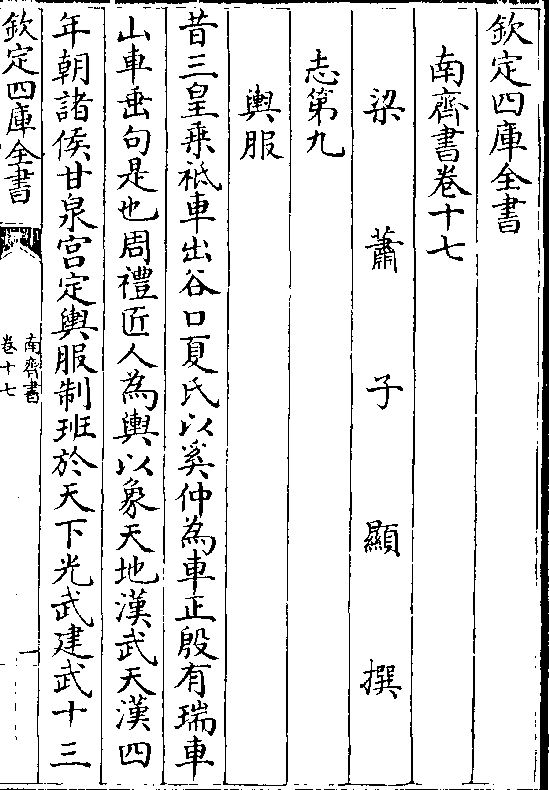 欽定四庫全書
南齊書卷十七
梁蕭子顯撰
志第九
輿服
昔三皇乗祗車出谷口夏氏以奚仲為車正殷有瑞車
山車垂句是也周禮匠人為輿以象天地漢武天漢四
年朝諸侯甘泉宫定輿服制班於天下光武建武十三
欽定四庫全書
南齊書
卷十七
一